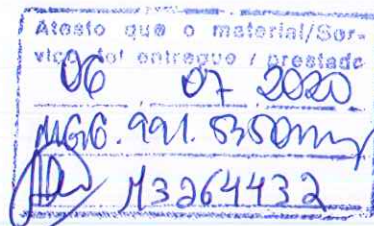 Atesto que o material/Ser-
viço foi entregue / prestado
06 07 2020
M3264432